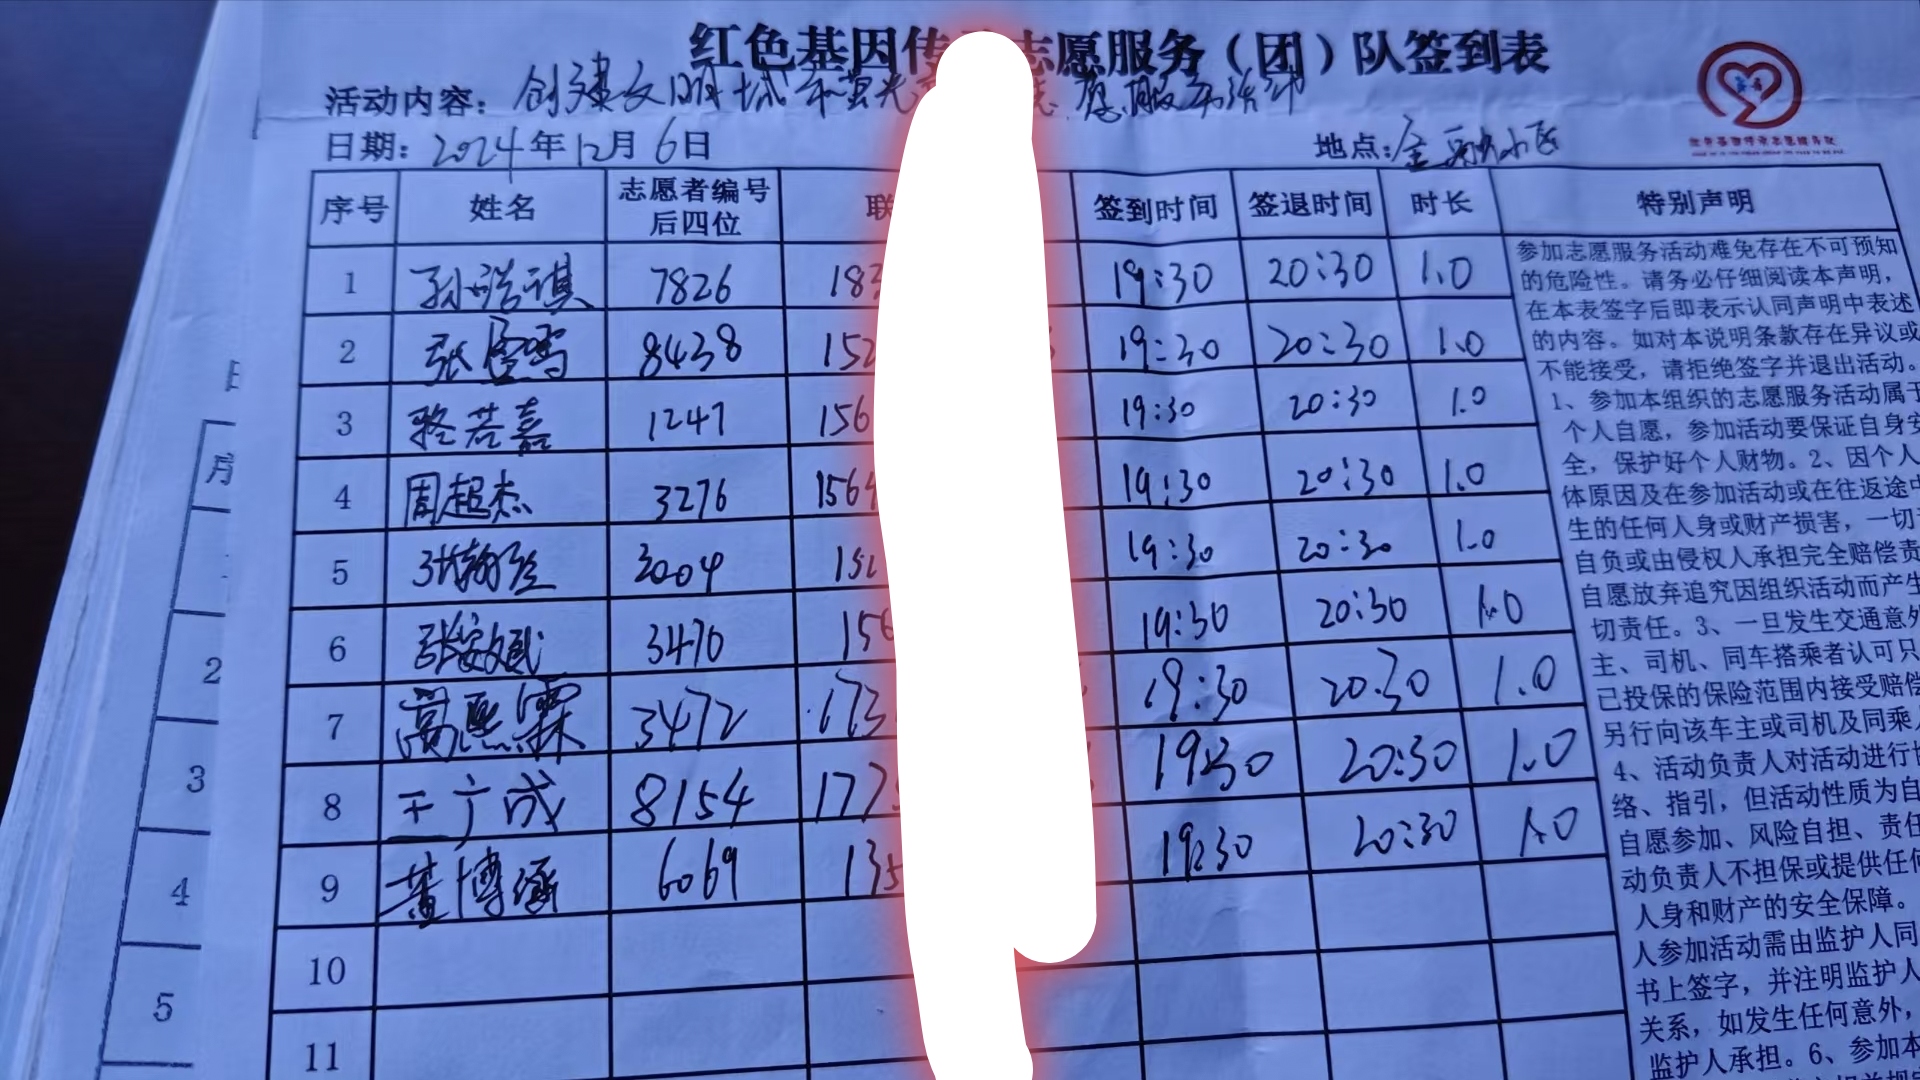 红色基因传 志愿服务（团）队签到表
活动内容：创建文明城市 志愿服务活动
日期：2024年12月6日 地点：金 小区
序号 姓名 志愿者编号后四位 联 签到时间 签退时间 时长 特别声明
1 孙浩祺 7826 183 19:30 20:30 1.0
2 张 8438 152 19:30 20:30 1.0
3 骆若嘉 1247 156 19:30 20:30 1.0
4 周超杰 3276 1564 19:30 20:30 1.0
5 张翰 3004 19:30 20:30 1.0
6 张 3470 156 19:30 20:30 1.0
7 高熙霖 3472 173 19:30 20:30 1.0
8 王广成 8154 177 19:30 20:30 1.0
9 董博涵 6069 135 19:30 20:30 1.0
10
11
参加志愿服务活动难免存在不可预知
的危险性。请务必仔细阅读本声明，
在本表签字后即表示认同声明中表述
的内容。如对本说明条款存在异议或
不能接受，请拒绝签字并退出活动。
1、参加本组织的志愿服务活动属于
个人自愿，参加活动要保证自身安
全，保护好个人财物。2、因个人
体原因及在参加活动或在往返途中
生的任何人身或财产损害，一切
自负或由侵权人承担完全赔偿责
自愿放弃追究因组织活动而产生
切责任。3、一旦发生交通意外
主、司机、同车搭乘者认可只
已投保的保险范围内接受赔偿
另行向该车主或司机及同乘
4、活动负责人对活动进行
络、指引，但活动性质为自
自愿参加、风险自担、责任
动负责人不担保或提供任何
人身和财产的安全保障。
人参加活动需由监护人同
书上签字，并注明监护人
关系，如发生任何意外，
监护人承担。6、参加本
序
2
3
4
5